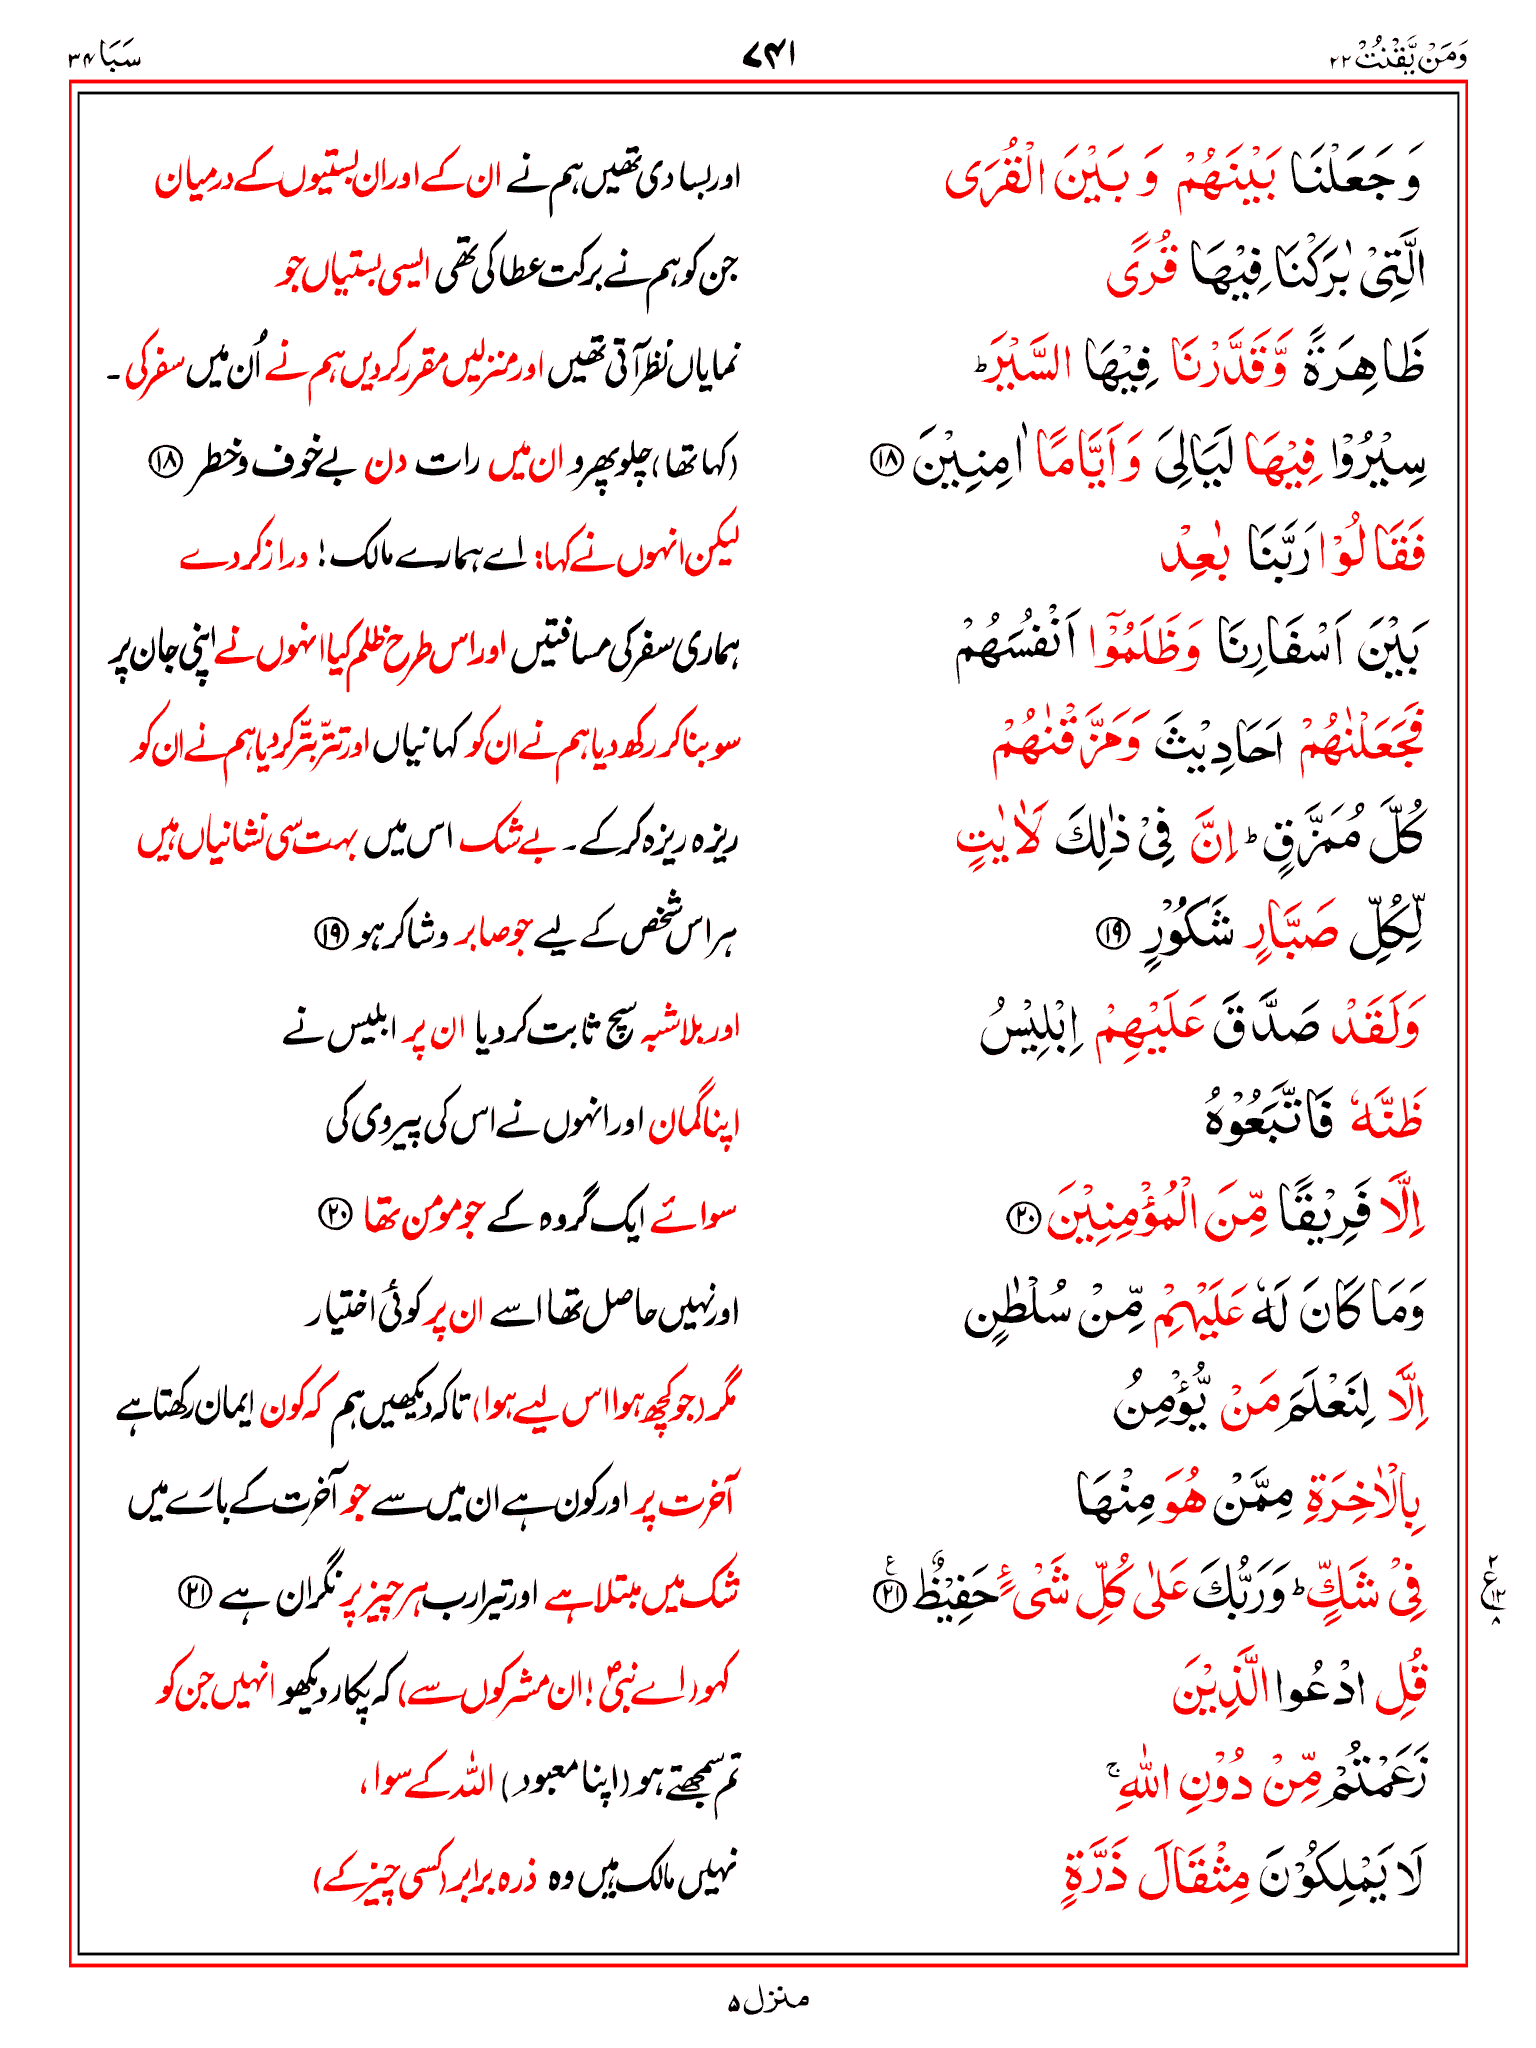 وَمَنْ يَّقْنُتْ ۲۲ ۷۴۱ سَبَا ۳۴
وَ جَعَلْنَا بَيْنَهُمْ وَ بَيْنَ الْقُرَى اور بسا دی تھیں ہم نے ان کے اور ان بستیوں کے درمیان
الَّتِىْ بٰرَكْنَا فِيْهَا قُرًى جن کو ہم نے برکت عطا کی تھی ایسی بستیاں جو
ظَاهِرَةً وَّقَدَّرْنَا فِيْهَا السَّيْرَ ؕ نمایاں نظر آتی تھیں اور منزلیں مقرر کر دیں ہم نے اُن میں سفر کی ۔
سِيْرُوْا فِيْهَا لَيَالِىَ وَ اَيَّامًا اٰمِنِيْنَ ۱۸ (کہا تھا) چلو پھرو ان میں رات دن بے خوف و خطر ۱۸
فَقَالُوْا رَبَّنَا بٰعِدْ لیکن انہوں نے کہا: اے ہمارے مالک! دراز کر دے
بَيْنَ اَسْفَارِنَا وَظَلَمُوْۤا اَنْفُسَهُمْ ہماری سفر کی مسافتیں اور اس طرح ظلم کیا انہوں نے اپنی جان پر
فَجَعَلْنٰهُمْ اَحَادِيْثَ وَمَزَّقْنٰهُمْ سو بنا کر رکھ دیا ہم نے ان کو کہانیاں اور تتّر بتّر کر دیا ہم نے ان کو
كُلَّ مُمَزَّقٍ ؕ اِنَّ فِىْ ذٰلِكَ لَاٰيٰتٍ ریزہ ریزہ کر کے۔ بے شک اس میں بہت سی نشانیاں ہیں
لِّكُلِّ صَبَّارٍ شَكُوْرٍ ۱۹ ہر اس شخص کے لیے جو صابر و شاکر ہو ۱۹
وَلَقَدْ صَدَّقَ عَلَيْهِمْ اِبْلِيْسُ اور بلاشبہ سچ ثابت کر دیا ان پر ابلیس نے
ظَنَّهٗ فَاتَّبَعُوْهُ اپنا گمان اور انہوں نے اس کی پیروی کی
اِلَّا فَرِيْقًا مِّنَ الْمُؤْمِنِيْنَ ۲۰ سوائے ایک گروہ کے جو مومن تھا ۲۰
وَمَا كَانَ لَهٗ عَلَيْهِمْ مِّنْ سُلْطٰنٍ اور نہیں حاصل تھا اسے ان پر کوئی اختیار
اِلَّا لِنَعْلَمَ مَنْ يُّؤْمِنُ مگر (جو کچھ ہوا اس لیے ہوا) تاکہ دیکھیں ہم کہ کون ایمان رکھتا ہے
بِالْاٰخِرَةِ مِمَّنْ هُوَ مِنْهَا آخرت پر اور کون ہے ان میں سے جو آخرت کے بارے میں
فِىْ شَكٍّ ؕ وَرَبُّكَ عَلٰى كُلِّ شَىْءٍ حَفِيْظٌ ۲۱ شک میں مبتلا ہے اور تیرا رب ہر چیز پر نگران ہے ۲۱
قُلِ ادْعُوا الَّذِيْنَ کہو (اے نبیؐ! ان مشرکوں سے) کہ پکار دیکھو انہیں جن کو
زَعَمْتُمْ مِّنْ دُوْنِ اللّٰهِ ۚ تم سمجھتے ہو (اپنا معبود) اللہ کے سوا،
لَا يَمْلِكُوْنَ مِثْقَالَ ذَرَّةٍ نہیں مالک ہیں وہ ذرہ برابر (کسی چیز کے)
منزل ۵